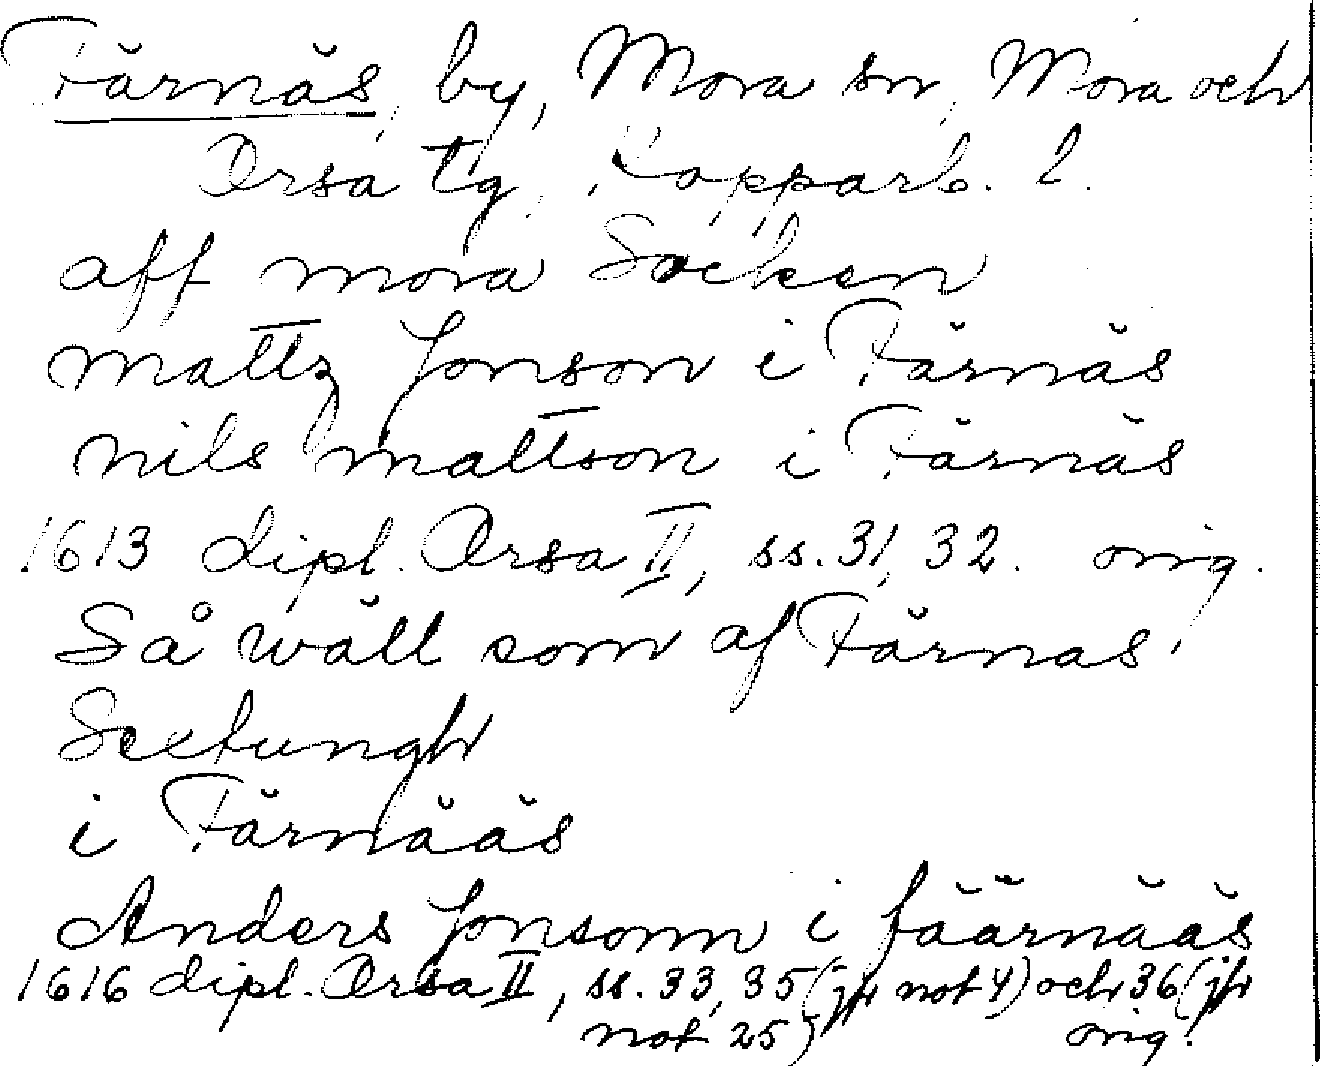 Färnäs, by, Mora sn, Mora och
Orsa tg, Kopparb. l.
aff mora Socken
mattz Jonson i Färnäs
nils mattson i Färnäs
1613 dipl. Orsa II, ss. 31, 32. orig.
Så wäll som af Färnas
Sextungh
i Färnääs
Anders Jonsonn i fäärnääs
1616 dipl. Orsa II, ss. 33, 35 (jfr not 4) och 36 (jfr
not 25) orig.